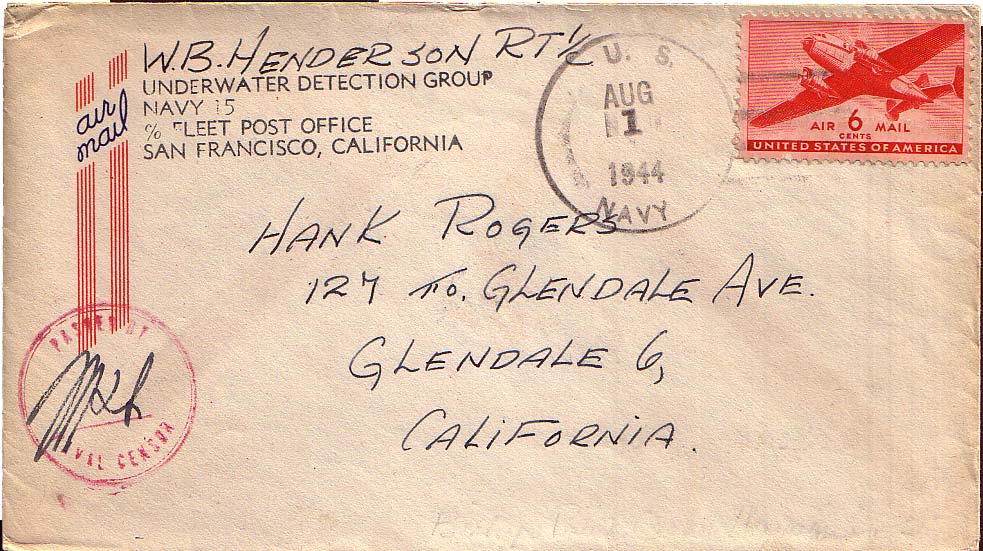 W.B. HENDERSON RT 1/c
UNDERWATER DETECTION GROUP
NAVY 15
℅ FLEET POST OFFICE
SAN FRANCISCO, CALIFORNIA
air
mail
U. S.
AUG
1
1944
NAVY
AIR 6 MAIL
CENTS
UNITED STATES OF AMERICA
HANK ROGERS
127 GLENDALE AVE.
GLENDALE 6,
CALIFORNIA.
PASSED BY
NAVAL CENSOR